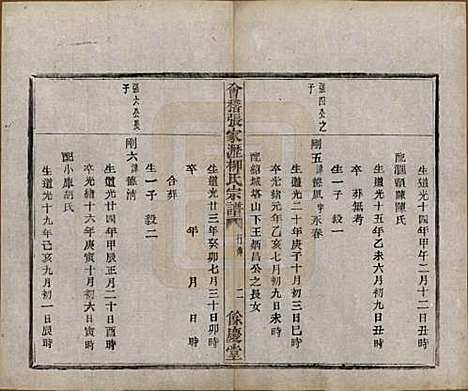 生道光十四年二月十二日丑時
配湖頭陳陳氏
生道光十五年乙未六月初九日丑時
卒葬無考
張四公之
子
剛五諱懋鳳字永春
生道光二十年庚子十月初三日辰時
卒光緒元年乙亥七月初九日未時
配紹城塔山下王炳昌公之長女
生一子毅一
會稽張家瀝柳氏宗譜
行傳
二
餘慶堂
生道光廿三年癸卯七月三十日卯時
卒年月日時
合葬
生一子毅二
張六公長
子
剛六諱懋清
生道光廿四年甲辰正月二十日酉時
卒光緒十六年庚寅十月初六日寅時
配小庫胡氏
生道光十九年己亥九月初一日辰時